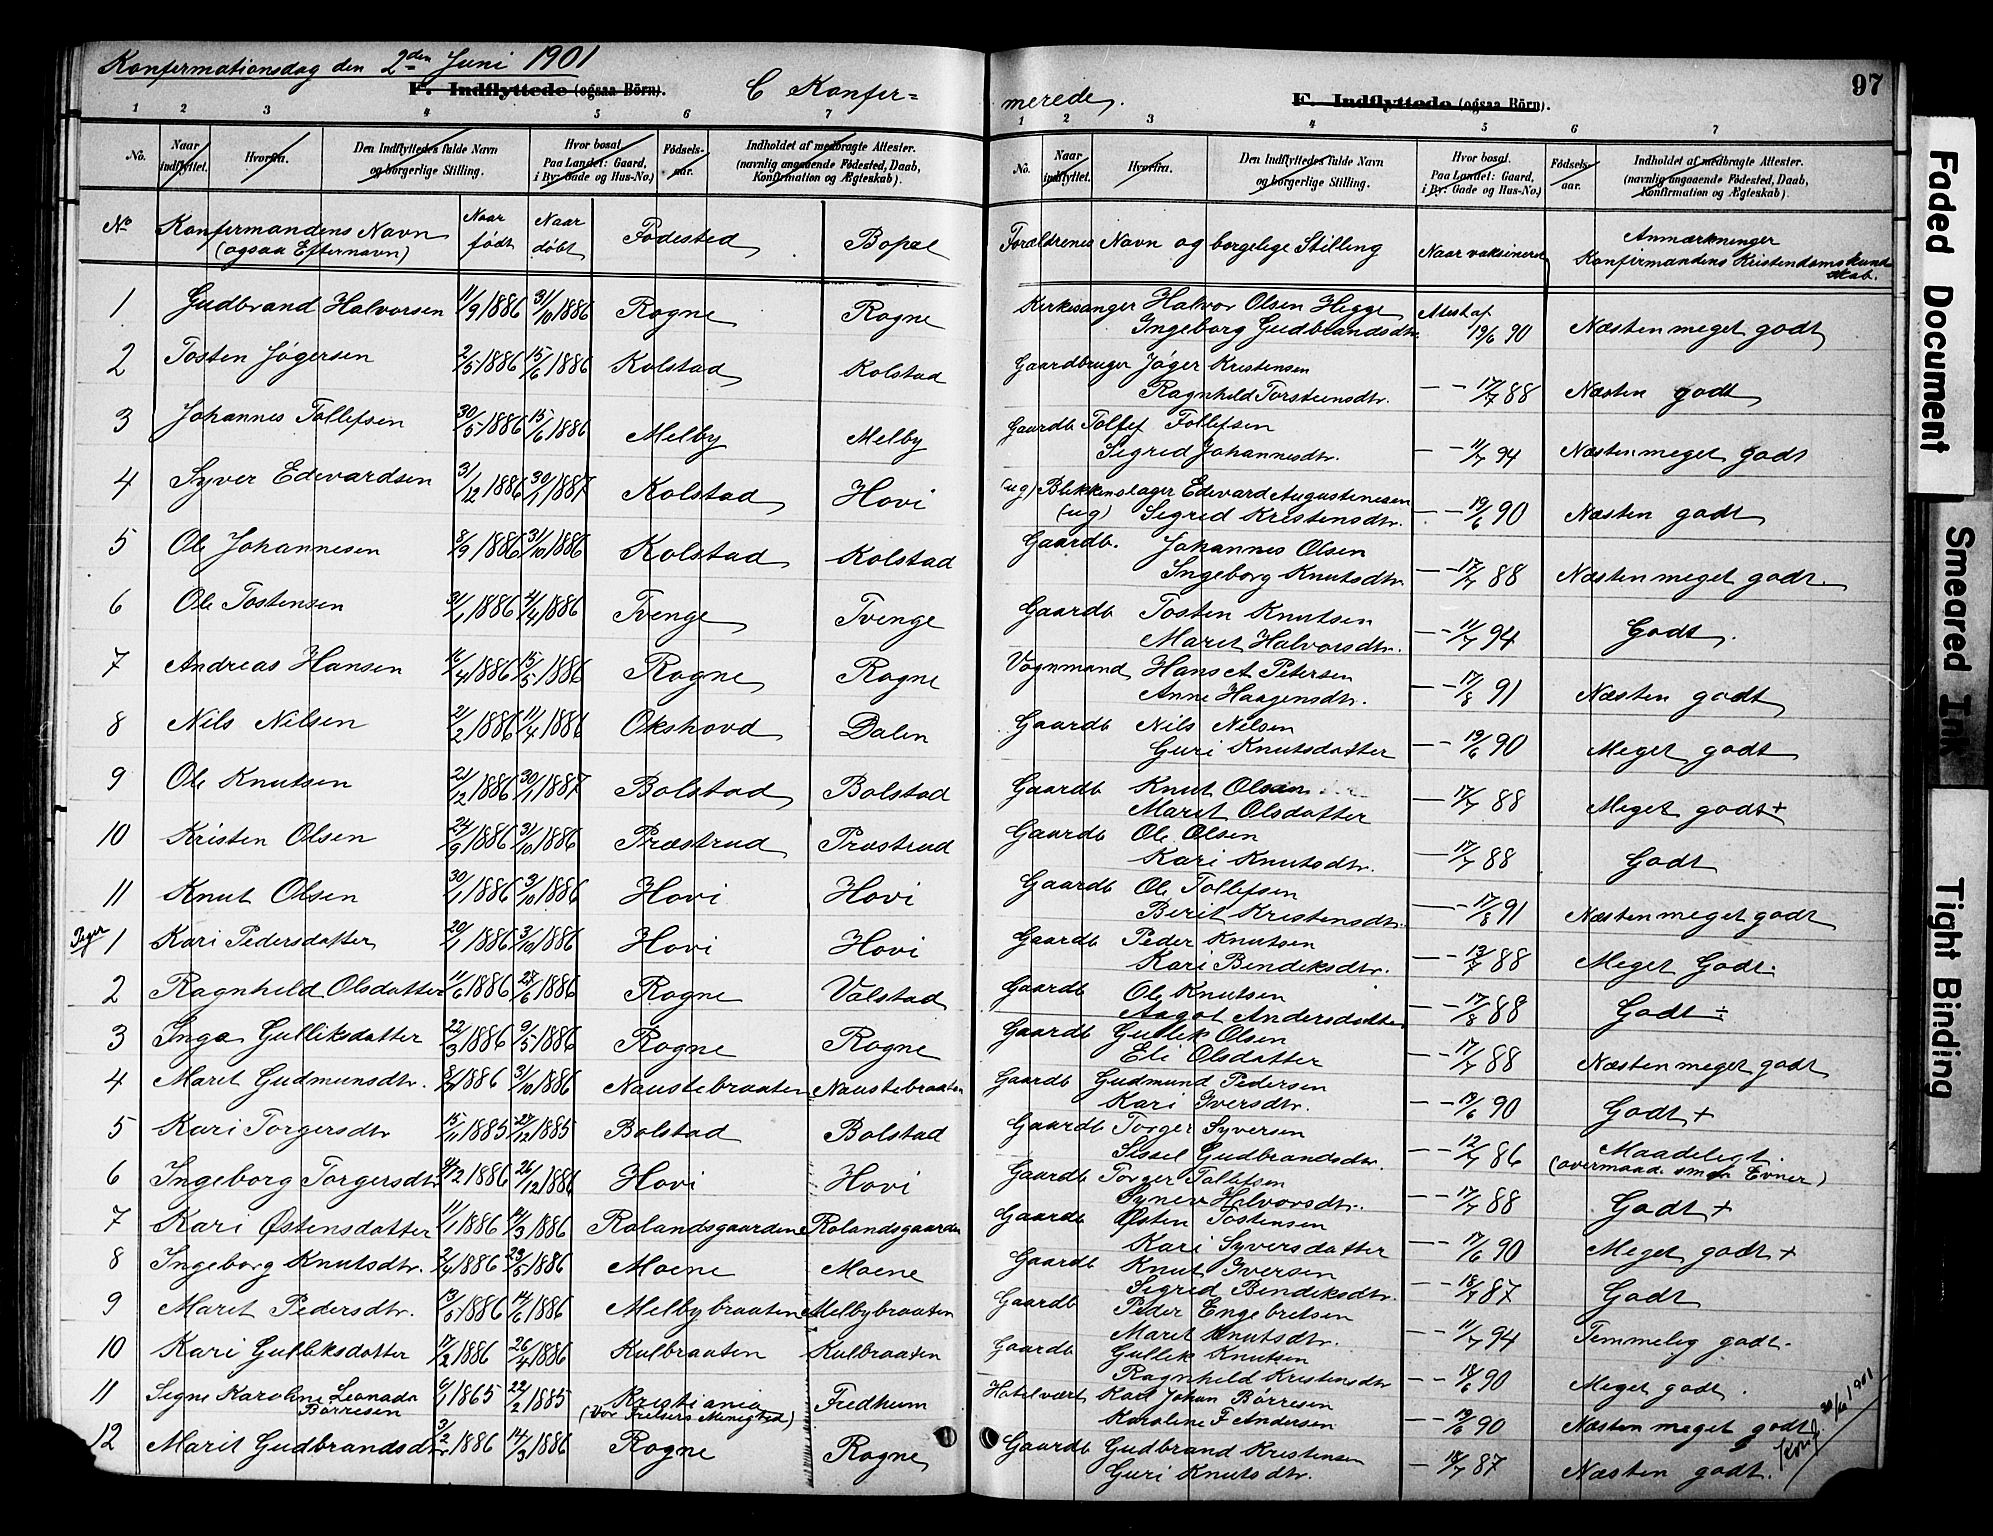 Konfermationsdag den 2den Juni 1901
F. Indflyttede (ogsaa Börn).
C Konfer=
merede.
F. Indflyttede (ogsaa Börn).
97
1 2 3 4 5 6 7
1 2 3 4 5 6 7
No. Naar indflyttet. Hvorfra. Den Indflyttedes fulde Navn og borgerlige Stilling. Hvor bosat. Paa Landet: Gaard, i By: Gade og Hus-No.) Fødselsaar. Indholdet af medbragte Attester. (navnlig angaaende Fødested, Daab, Konfirmation og Ægteskab).
No. Naar indflyttet. Hvorfra. Den Indflyttedes fulde Navn og borgerlige Stilling. Hvor bosat. Paa Landet: Gaard, i By: Gade og Hus-No.) Fødselsaar. Indholdet af medbragte Attester. (navnlig angaaende Fødested, Daab, Konfirmation og Ægteskab).
No Konfermandens Navn (ogsaa Efternavn) Naar født Naar døbt Fødested Bopæl Forældrenes Navn og borgelige Stilling Naar vaksineret Anmærkninger Konfirmandens Kristendomskundskab.
1 Gudbrand Halvorsen 11/9 1886 31/10 1886 Rogne Rogne Kirkesanger Halvor Olsen Hegge
Ingeborg Gudbrandsdtr. Attest af 19/6 90 Næsten meget godt
2 Tosten Jøgersen 2/5 1886 15/6 1886 Kolstad Kolstad Gaardbruger Jøger Kristensen
Ragnhild Torsteinsdtr. — - 17/7 88 Næsten godt
3 Johannes Tollefsen 30/5 1886 15/6 1886 Melby Melby Gaardb Tollef Tollefsen
Sigrid Johannesdtr. — - 11/7 94 Næsten meget godt
4 Syver Edevardsen 31/12 1886 30/1 1887 Kolstad Hovi (ug) Blikkenslager Edevard Augustinesen
(ug) Sigrid Kristensdtr. — - 19/6 90 Næsten godt
5 Ole Johannesen 8/9 1886 31/10 1886 Kolstad Kolstad Gaardb. Johannes Olsen
Ingeborg Knutsdtr. — - 17/7 88 Næsten meget godt.
6 Ole Tostensen 31/1 1886 4/4 1886 Tvenge Tvenge Gaardb Tosten Knutsen
Marit Halvorsdtr. — - 11/7 94 Godt.
7 Andreas Hansen 16/4 1886 15/5 1886 Rogne Rogne Vognmand Hans A Petersen
Anne Haagensdtr. — - 17/8 91 Næsten godt
8 Nils Nilsen 21/2 1886 11/4 1886 Okshovd Dalen Gaardb Nils Nilsen
Guri Knutsdatter — - 19/6 90 Meget godt
9 Ole Knutsen 21/12 1886 30/1 1887 Bolstad Bolstad Gaardb Knut Olsen
Marit Olsdatter — - 17/7 88 Meget godt +
10 Kristen Olsen 24/9 1886 31/10 1886 Præstrud Præstrud Gaardb Ole Olsen
Kari Knutsdtr. — 17/7 88 Godt
11 Knut Olsen 30/1 1886 3/10 1886 Hovi Hovi Gaardb Ole Tollefsen
Berit Kristensdtr. — - 17/8 91 Næsten meget godt
Piger
1 Kari Pedersdatter 20/1 1886 3/10 1886 Hovi Hovi Gaardb Peder Knutsen
Kari Bendiksdtr. — - 13/7 88 Meget Godt.
2 Ragnhild Olsdatter 11/6 1886 27/6 1886 Rogne Valstad Gaardb Ole Knutsen
Aagot Andersdatter — - 17/8 88 Godt ÷
3 Inga Gulliksdatter 22/3 1886 9/5 1886 Rogne Rogne Gaardb Gullik Olsen
Eli Olsdatter — - 17/7 88 Næsten meget godt
4 Marit Gudmunsdtr. 8/9 1886 31/10 1886 Naustebraaten Naustebraaten Gaardb Gudmund Pedersen
Kari Iversdtr. — - 17/6 90 Godt +
5 Kari Torgersdtr 15/11 1885 27/12 1885 Bolstad Bolstad Gaardb Torger Syversen
Sissel Gudbrandsdtr. — - 12/7 86 Maadeligt.
(overmaade smaa Evner)
6 Ingeborg Torgersdtr 9/12 1886 26/12 1886 Hovi Hovi Gaardb Torger Tollefsen
Synev Halvorsdtr. — - 17/7 88 Godt +
7 Kari Østensdatter 11/1 1886 14/3 1886 Rolandsgaarden Rolandsgaarden Gaardb Østen Tostensen
Kari Syversdatter — - 17/6 90 Meget godt +
8 Ingeborg Knutsdtr. 2/4 1886 23/5 1886 Moene Moene Gaardb Knut Iversen
Sigrid Bendiksdtr. — - 18/7 87 Godt
9 Marit Pedersdtr. 13/5 1886 14/6 1886 Melbybraaten Melbybraaten Gaardb Peder Engebretsen
Marit Knutsdtr. — - 11/7 94 Temmelig godt.
10 Kari Gulliksdatter 17/2 1886 26/4 1886 Kulbraaten Kulbraaten Gaardb Gullik Knutsen
Ragnhild Kristensdtr — - 18/6 90 Meget godt.
11 Signe Karoline Leonada Børresen 6/1 1865 22/2 1885 Kristiania (Vor Frelsers Menighed) Fredheim Hotelvært Karl Johan Børresen
Karoline F Andersen — - 19/6 90 Næsten meget godt
Konf. 30/6 1901
12 Marit Gudbrandsdtr 3/2 1886 14/3 1886 Rogne Rogne Gaardb Gudbrand Kristensen
Guri Knutsdtr. — 18/7 87 Næsten godt.
Faded Document
Smeared Ink
Tight Binding